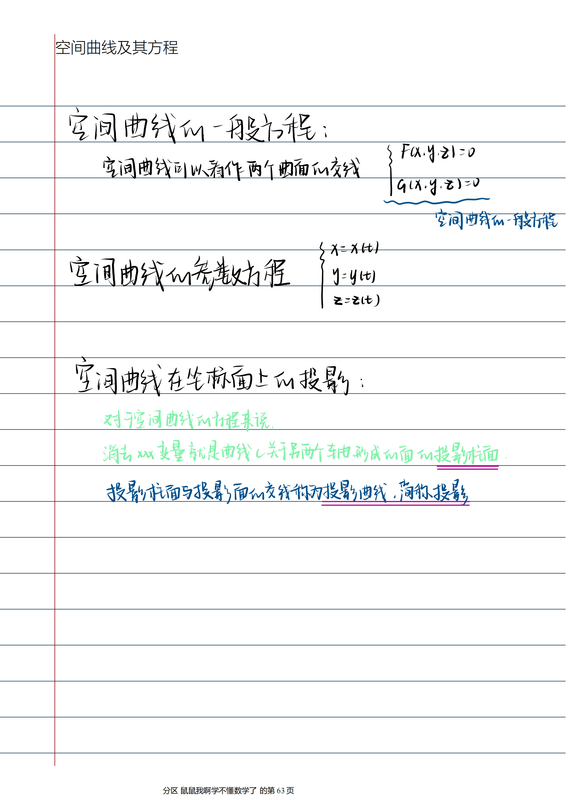 空间曲线及其方程
空间曲线的一般方程：
空间曲线可以看作两个曲面的交线
F(x.y.z)=0
G(x.y.z)=0
空间曲线的一般方程
空间曲线的参数方程
x=x(t)
y=y(t)
z=z(t)
空间曲线在坐标面上的投影：
对于空间曲线的方程来说.
消去xxx变量就是曲线C关于另两个轴形成的面的投影柱面.
投影柱面与投影面的交线称为投影曲线.简称投影
分区 鼠鼠我啊学不懂数学了 的第 63 页